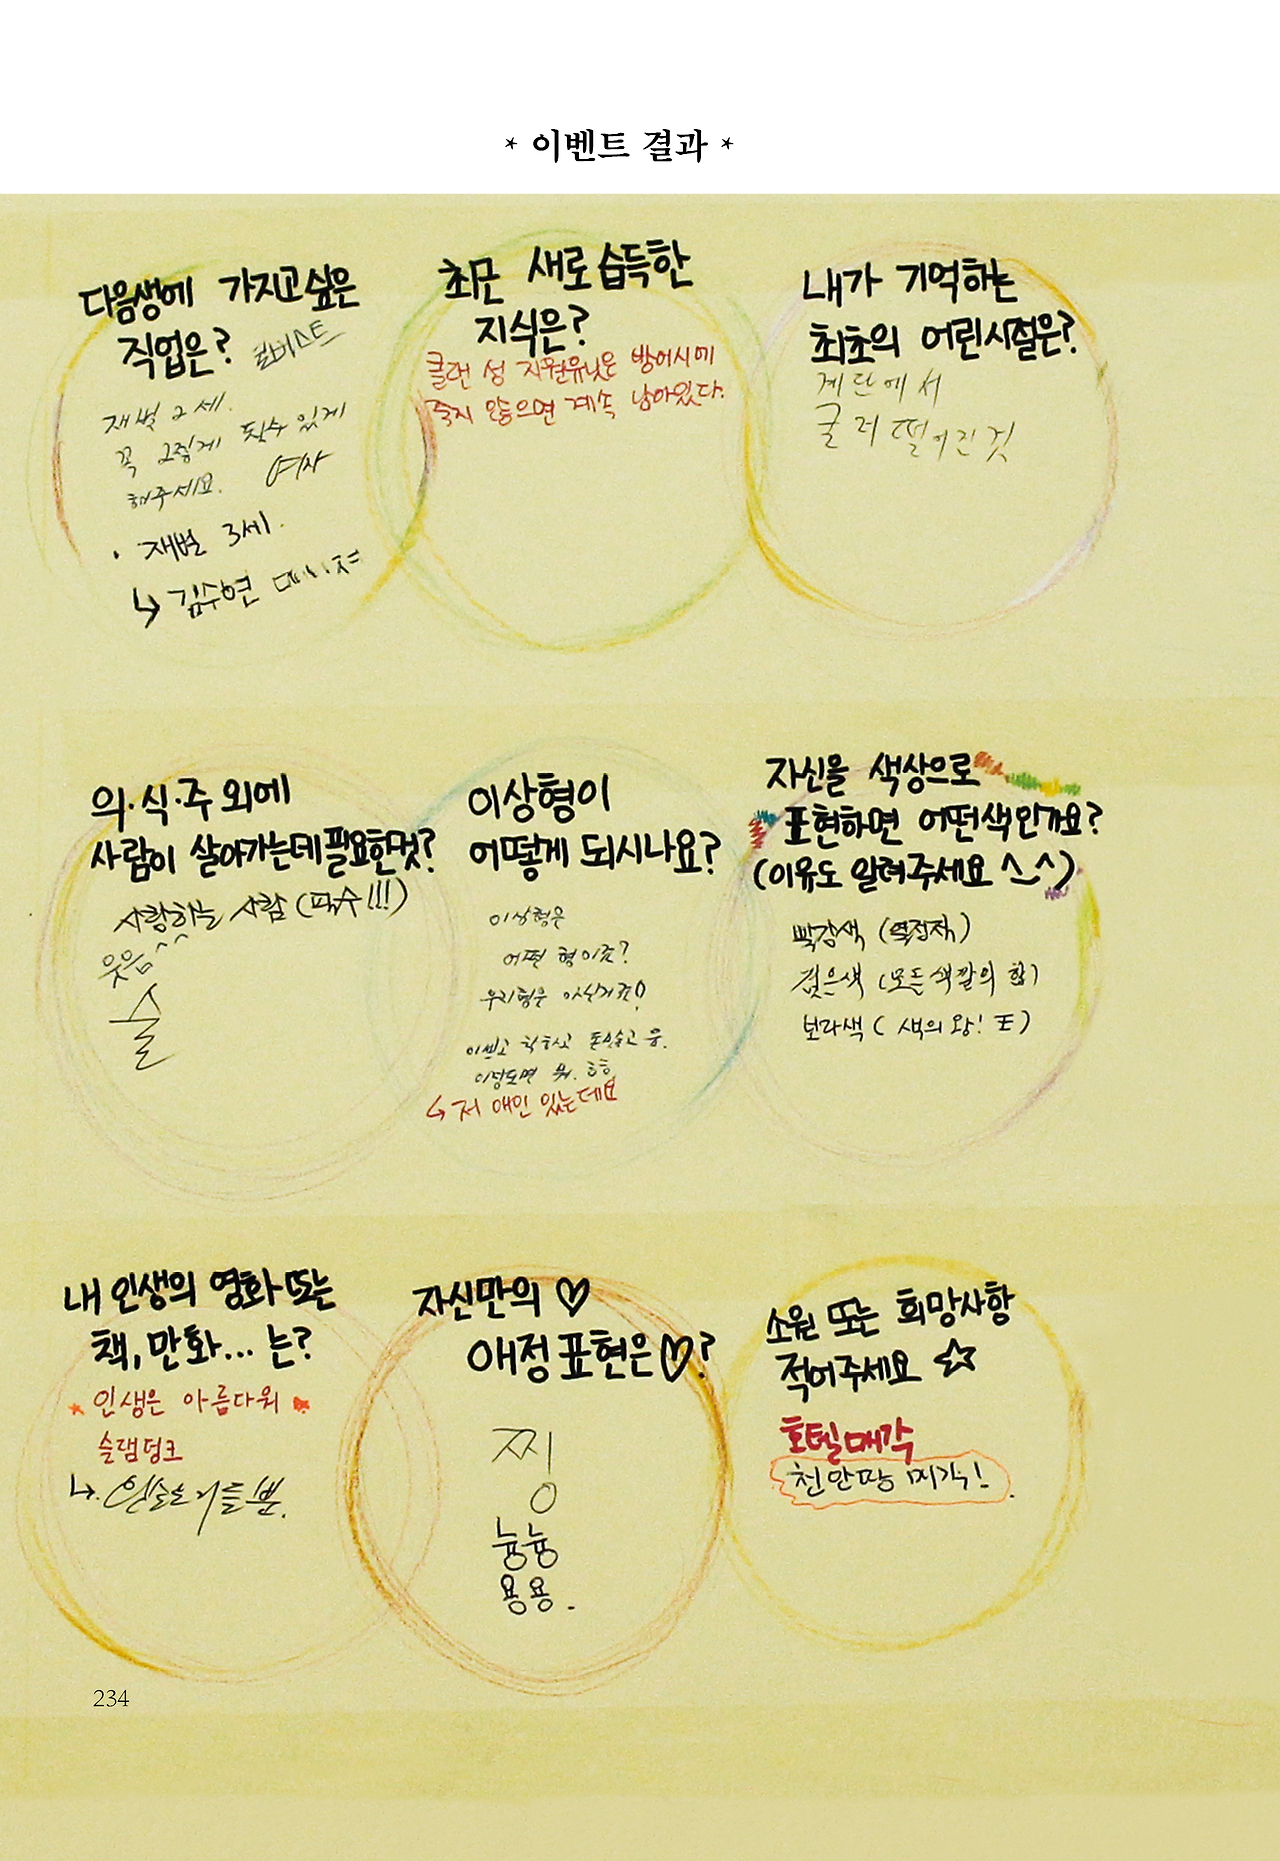 * 이벤트 결과 *
다음생에 가지고싶은
직업은?
재벌 2세.
꼭 그렇게 될수 있게
해주세요. 여자
· 재벌 3세.
↳ 김수현
최근 새로 습득한
지식은?
클랜 성 지원유닛은 방어시에
죽지 않으면 계속 남아있다.
내가 기억하는
최초의 어린시절은?
계단에서
굴러떨어진 것
의·식·주 외에
사람이 살아가는데 필요한 멋?
사랑하는 사람 (필수!!!)
웃음^^
술
이상형이
어떻게 되시나요?
이상형은
어떤 형이죠?
우리형은 아시겠죠!!
이쁘고 착하고 돈많고 음.
이정도면 뭐. 흐흐
↳ 저 애인 있는데요
자신을 색상으로
표현하면 어떤색인가요?
(이유도 알려주세요 ^_^)
빨강색 (열정적)
검은색 (모든 색깔의 합)
보라색 ( 색의 왕! 王 )
내 인생의 영화 또는
책, 만화... 는?
인생은 아름다워
슬램덩크
↳ 왼손은 거들 뿐.
자신만의 ♡
애정표현은♡?
찡
용
늉늉
용용.
소원 또는 희망사항
적어주세요 ☆
호텔매각
천안땅 매각!
234